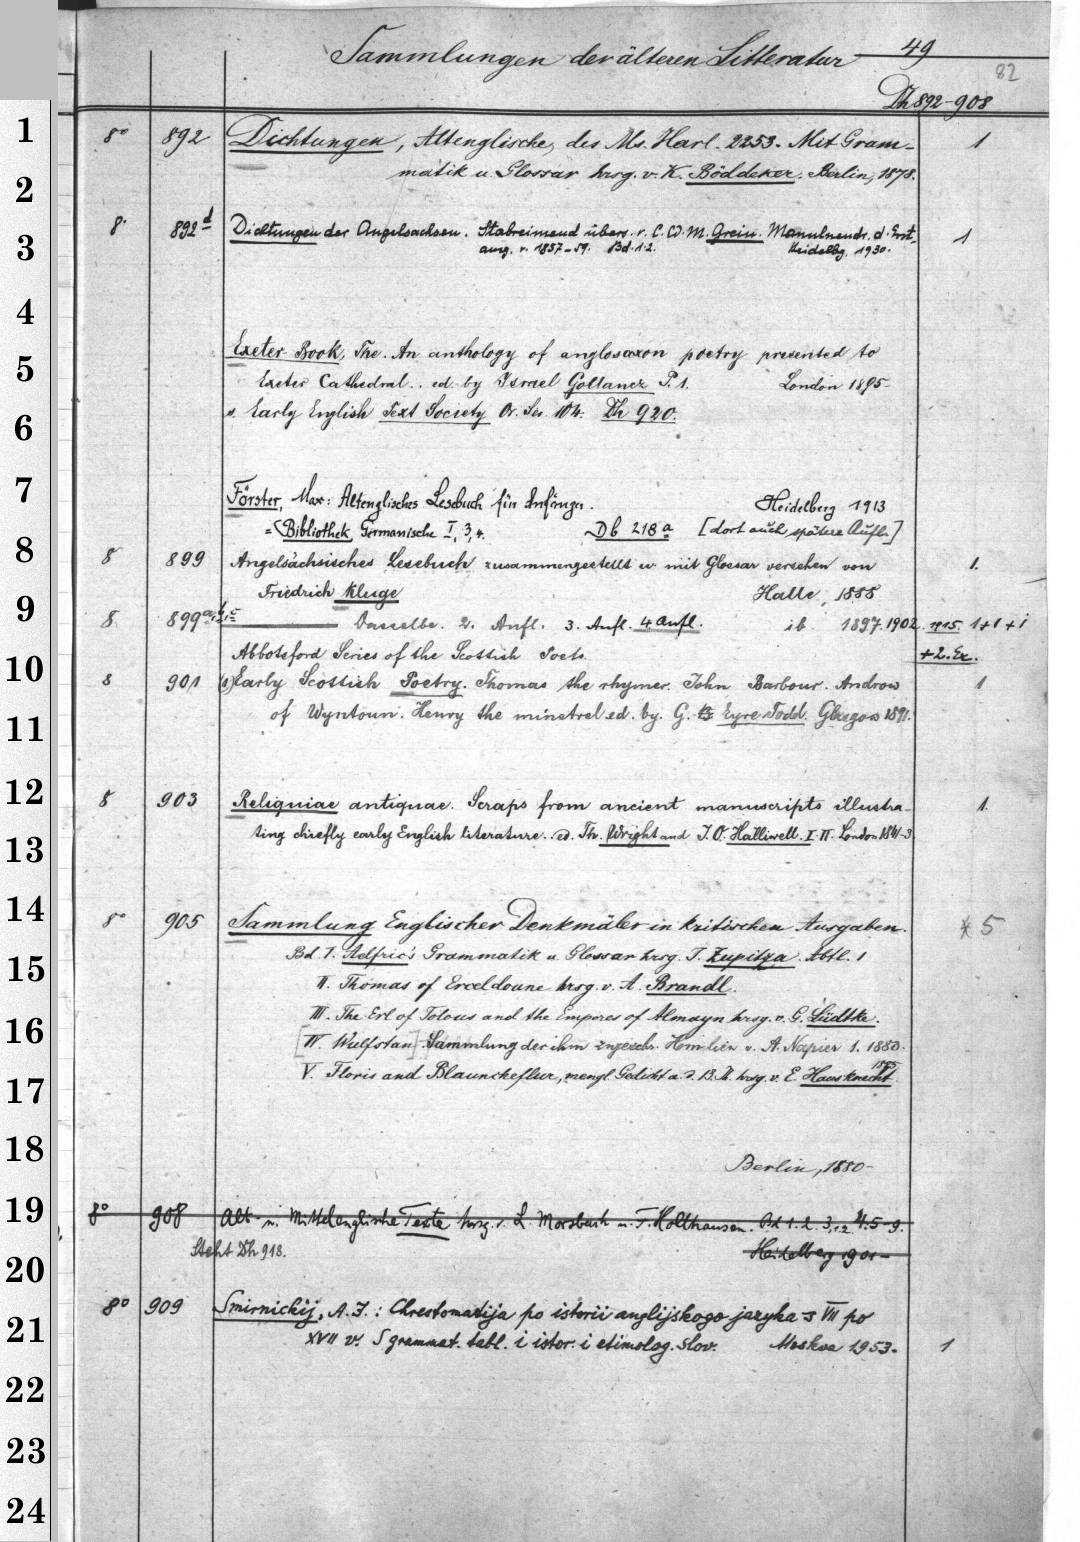 Sammlungen der älteren Litteratur 49
82
Dh 892-908
1
8° 892 Dichtungen, Altenglische, des Ms. Harl. 2253. Mit Gram- 1
matik u. Glossar hrsg. v. K. Böddeker. Berlin, 1878.
2
8° 892d Dichtungen der Angelsachsen. Stabreimend übers. v. C. W. M. Grein. Manulneudr. d. Erst- 1
3
ausg. v. 1857-59. Bd. 1.2. Heidelbg. 1930.
4
Exeter Book, The. An anthology of anglosaxon poetry presented to
5
Exeter Cathedral.. ed. by Israel Gollancz P. 1. London 1895-
s. Early English Text Society Or. Ser. 104. Dh 920.
6
7
Förster, Max: Altenglisches Lesebuch für Anfänger. Heidelberg 1913
= (Bibliothek, Germanische I, 3, 4. Db 218a [dort auch spätere Aufl.]
8
8 899 Angelsächsisches Lesebuch zusammengestellt u. mit Glossar versehen von 1.
Friedrich Kluge Halle, 1888
9
8. 899a,b,c Dasselbe. 2. Aufl. 3. Aufl. 4 Aufl. ib 1897. 1902. 1915. 1+1+1
+2. Ex.
Abbotsford Series of the Scottish Poets
10
8 901 (1) Early Scottish Poetry. Thomas the rhymer. John Barbour. Androw 1
of Wyntoun. Henry the minstrel ed. by. G. Eyre Todd. Glasgow 1891.
11
12
8 903 Reliquiae antiquae. Scraps from ancient manuscripts illustra- 1.
ting chiefly early English literature. ed. Th. Wright and J. O. Halliwell. I-II. London 1841-3
13
14
8° 905 Sammlung Englischer Denkmäler in kritischen Ausgaben. * 5
Bd. 1. Aelfric's Grammatik u. Glossar hrsg. J. Zupitza. Abtl. 1
15
II. Thomas of Erceldoune hrsg. v. A. Brandl.
III. The Erl of Tolous and the Emperes of Almayn hrsg. v. G. Lüdtke.
16
[IV. Wulfstan]. Sammlung der ihm zugeschr. Homilien v. A. Napier 1. 1883.
V. Floris and Blauncheflur, mengl. Gedicht a. d. 13. Jh. hrsg. v. E. Hausknecht. 1885
17
18
Berlin, 1880-
19
8° 908 Alt- u. Mittelenglische Texte hrsg. v. L. Morsbach u. F. Holthausen. Bd 1. 2. 3,1.2 4. 5-9.
Steht Dh 918. Heidelberg 1901-
20
8° 909 Smirnickij, A. I.: Chrestomatija po istorii anglijskogo jazyka s VII po
21
XVII v. S grammat. tabl. i istor. i etimolog. slov. Moskva 1953. 1
22
23
24